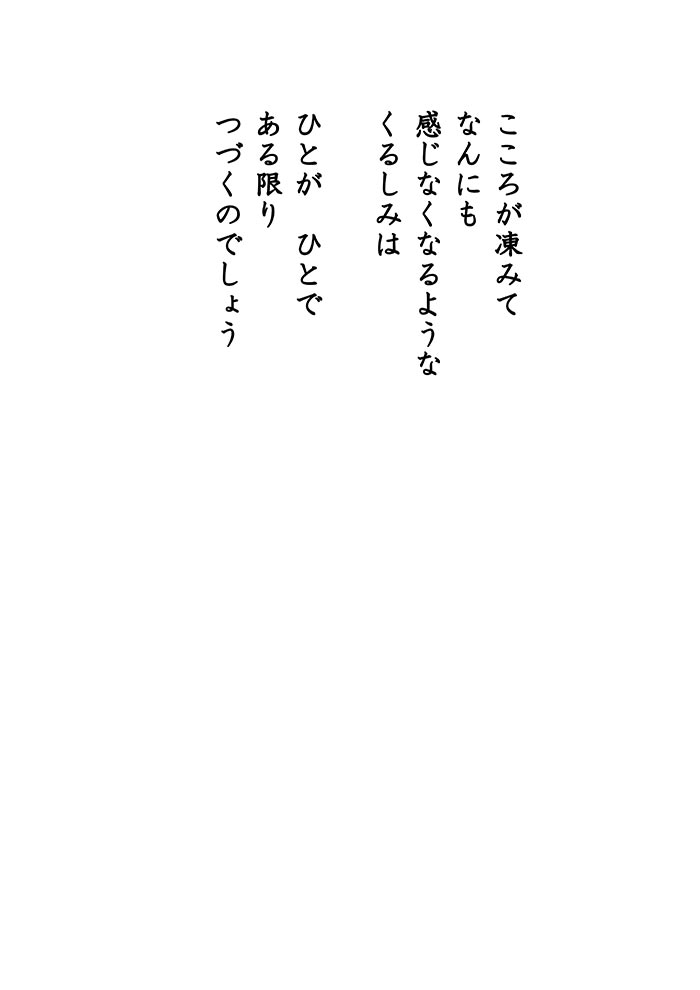 こころが凍みて
なんにも
感じなくなるような
くるしみは
ひとが　ひとで
ある限り
つづくのでしょう